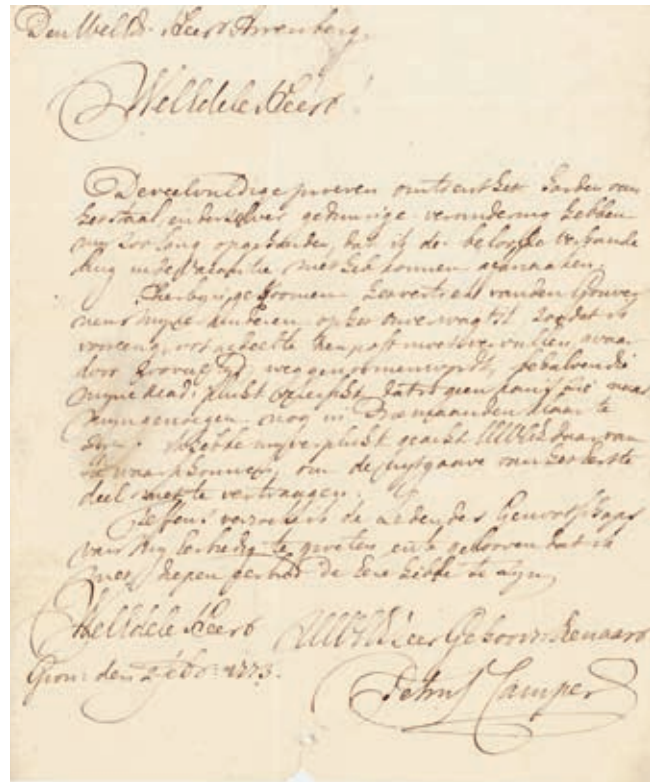 Den WelEd. Heer Arrenberg.
WelEdele Heer!
De veelvuldige proeven omtrent het harden van
het staal, en derzelver geduurige verandering hebben
my zoo lang opgehouden, dat ik de beloofde verhande
ling in de Vacantie niet heb konnen afmaaken.
Hier by is gekoomen het vertrek van den Gouver
neur myner kinderen, op het onverwagtst, zoo dat ik
voor een groot gedeelte dien post moet vervullen, waar
door zoo veel tyd weggenomen wordt, behalven die
myne Acad: plicht vereischt, dat ik geen kans zie naar
myn genoegen, nog in maanden klaar te
zyn. Ik hebbe my verplicht geacht UWEd. daar van
te waarschouwen, om de uytgaave van het eerste
deel niet te vertraagen.
Teffens verzoek ik de Leden des Genootschaps
van my eerbiedig te groeten, en te gelooven dat ik
met diepen eerbied de Eere hebbe te zyn
WelEdele Heer
UWEd. zeer Gehoorz. Dienaar
Gron: den 2 febr: 1773.
Petrus Camper